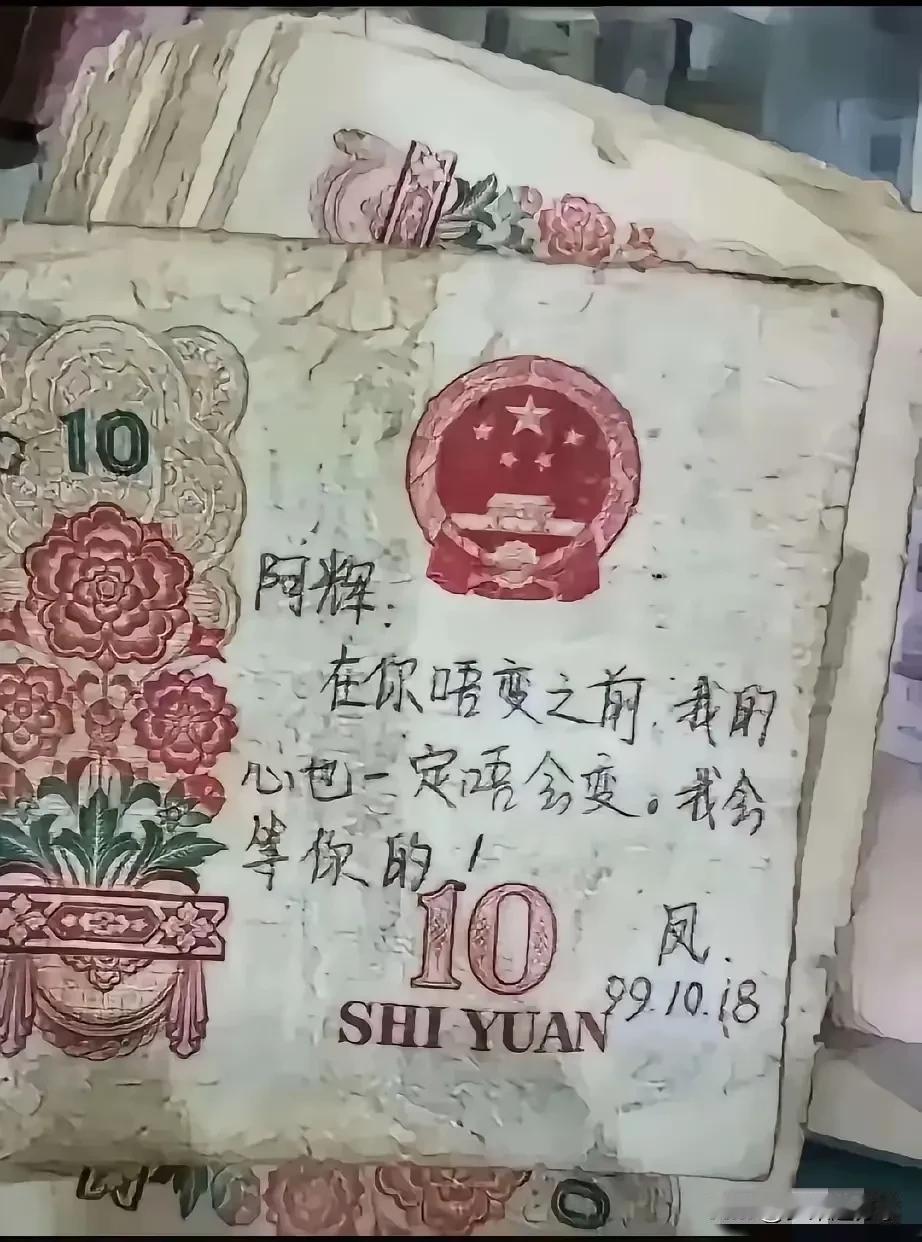 10
阿辉:
在你唔变之前，我的
心也一定唔会变。我会
等你的！
10
凤.
99.10.18
SHI YUAN
0